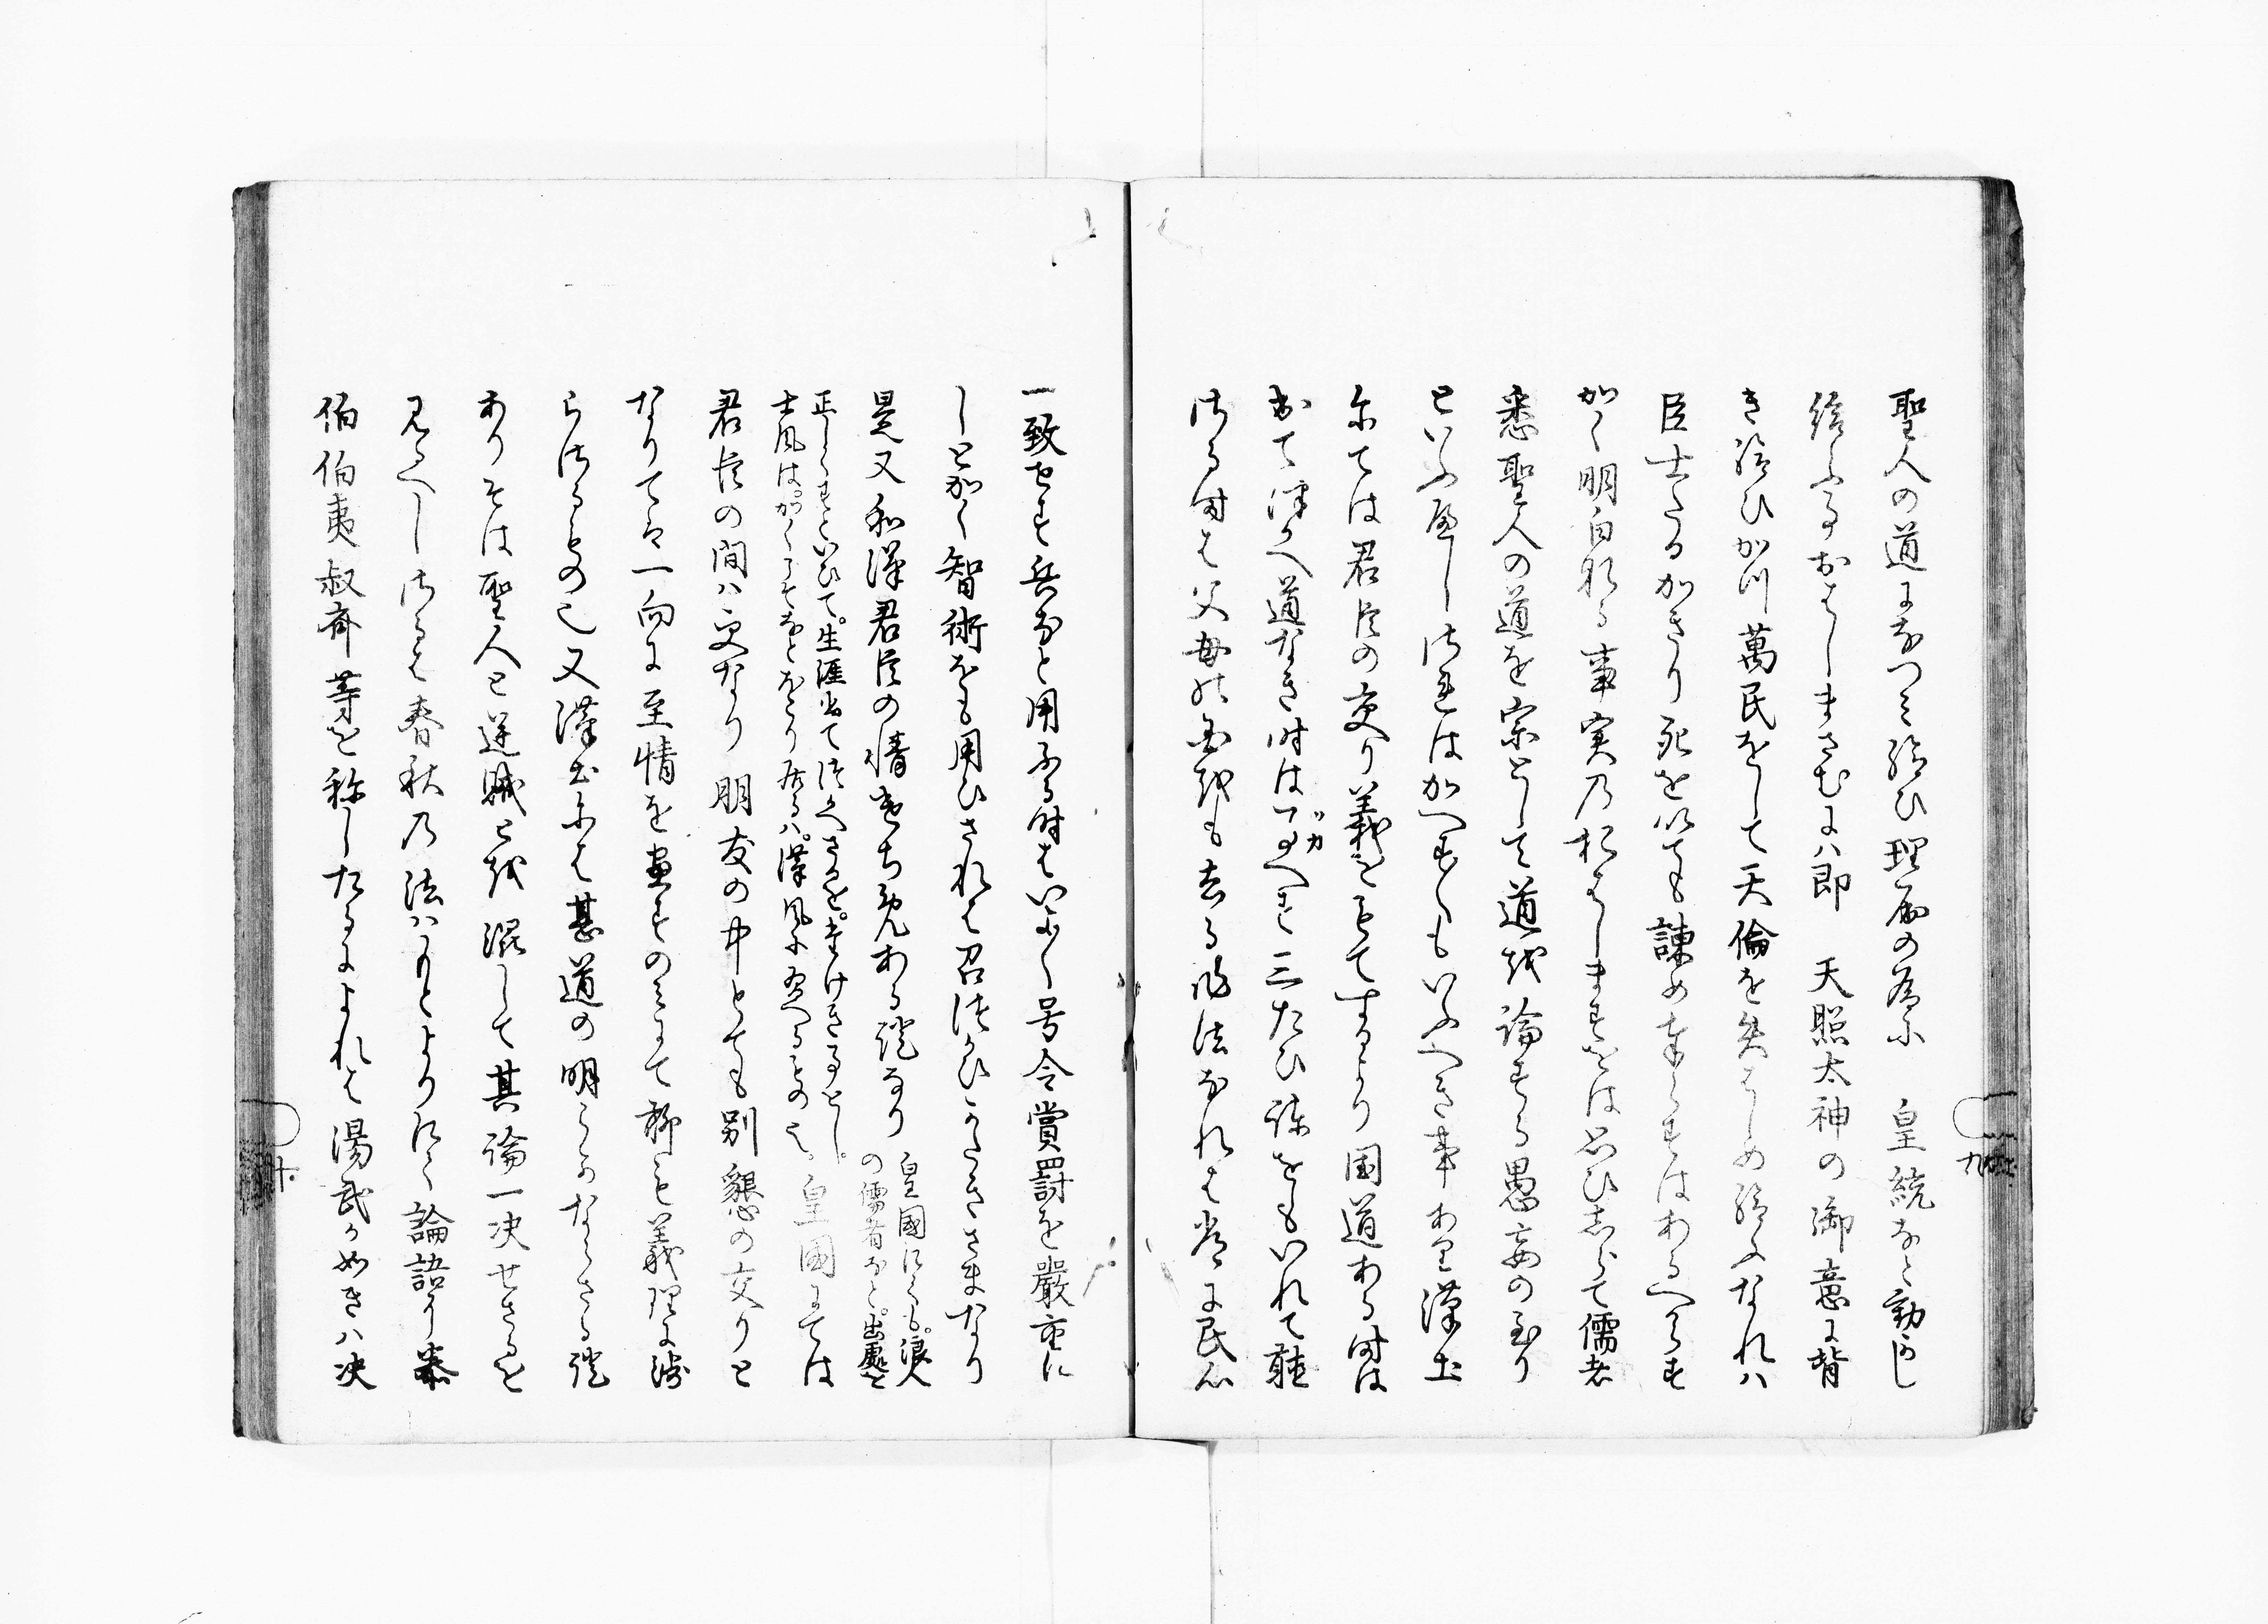 聖人の道になつミ給ひ理屈の為に　皇統なと動かし
給ふ事おはしまさむにハ即　天照太神の御意に背
き給ひかつ萬民をして天倫を失はしめ給ふなれハ
臣士たるかきり死を以ても諌め奉らすはあるへからす
かく明白なる事実乃おはしますをは思ひあらて儒者
悉聖人の道を宗として道を論する愚妄の至り
といふへし されはかへすくもいふへき事あり漢土
にては君臣の交り義をもてするより国道ある時は
出て津かへ道なき時はつかへす三たひ諌をもいれて聴
さる時は父母の国をも去る法なれは常に民心
一致せす兵なと用ふる時はいよく号令賞罰を嚴重に
しとかく智術をも用ひされは召つかひかたきさまなり
是又和漢君臣の情せちえんある證なり
皇國にても。浪人
の儒者なと。出處を
正しくすといひて。生涯出て仕へさるを。幸けき事とし。
士風は。かくこそなとをこり居るハ。漢風に効へるもの也。
皇國にては
君臣の間ハ更なり朋友の中とても別懇の交りと
なりてハ一向に至情を盡すのミにて聊も義理に渉
らさるもの也又漢土にハ甚道の明らかならさる證
ありそは聖人と逆賊とを混して其論一决せさるを
見るへし さるは春秋乃法ハもとより にて論語り泰
伯伯夷叔齊等を称したるによれは湯武か如きハ决